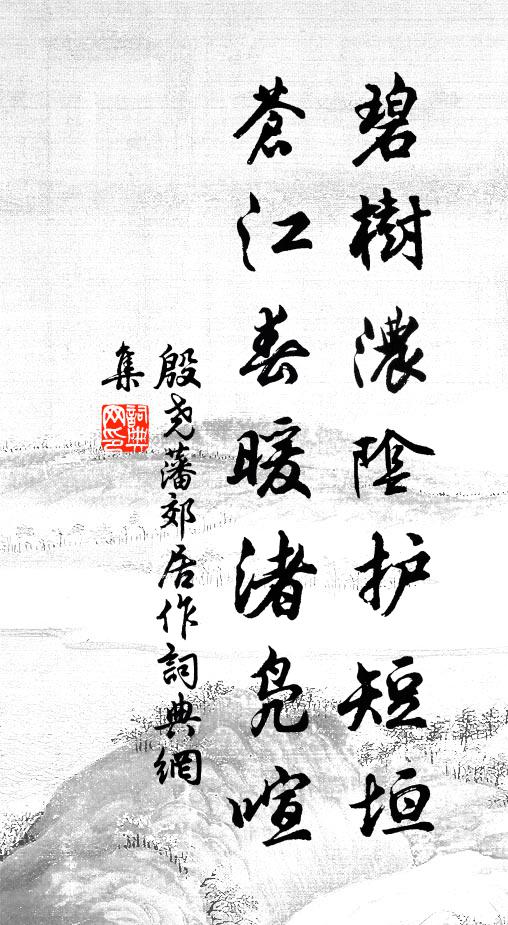 碧樹濃陰护短垣
蒼江春暖渚凫喧
殷尧藩郊居作詞典網
集
詞典网印